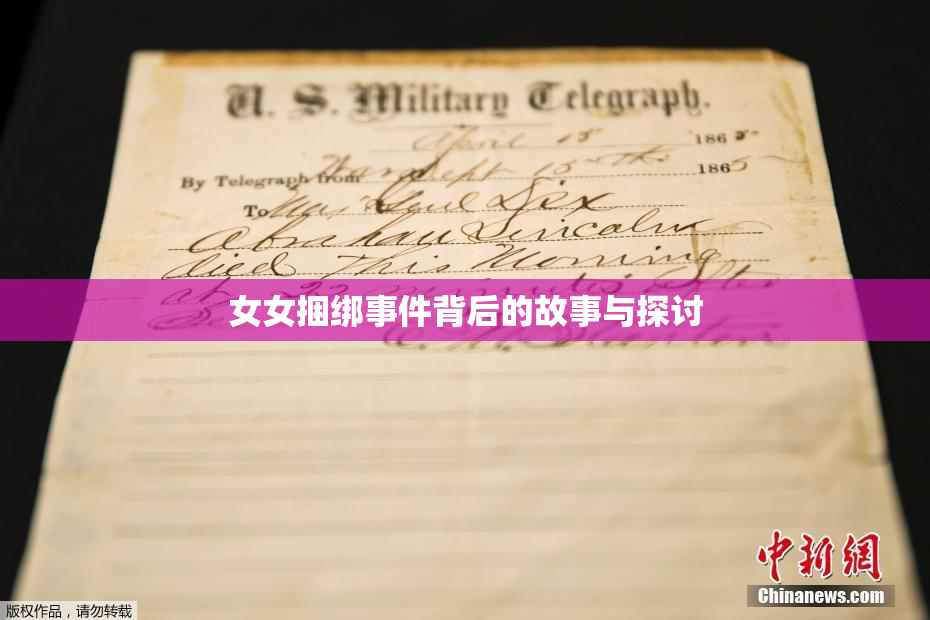 U. S. Military Telegraph.
April 15 1865
By Telegraph from War Dept 15th 1865
To Maj Genl Dix
Abraham Lincoln
died This Morning
at 22 minutes after
女女捆绑事件背后的故事与探讨
E. M. Stanton
中新网
Chinanews.com
版权作品，请勿转载